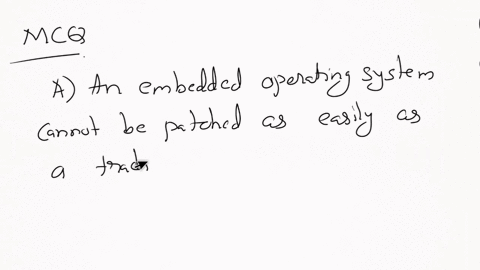 MCQ
A) An embedded operating system
cannot be patched as easily as
a trad